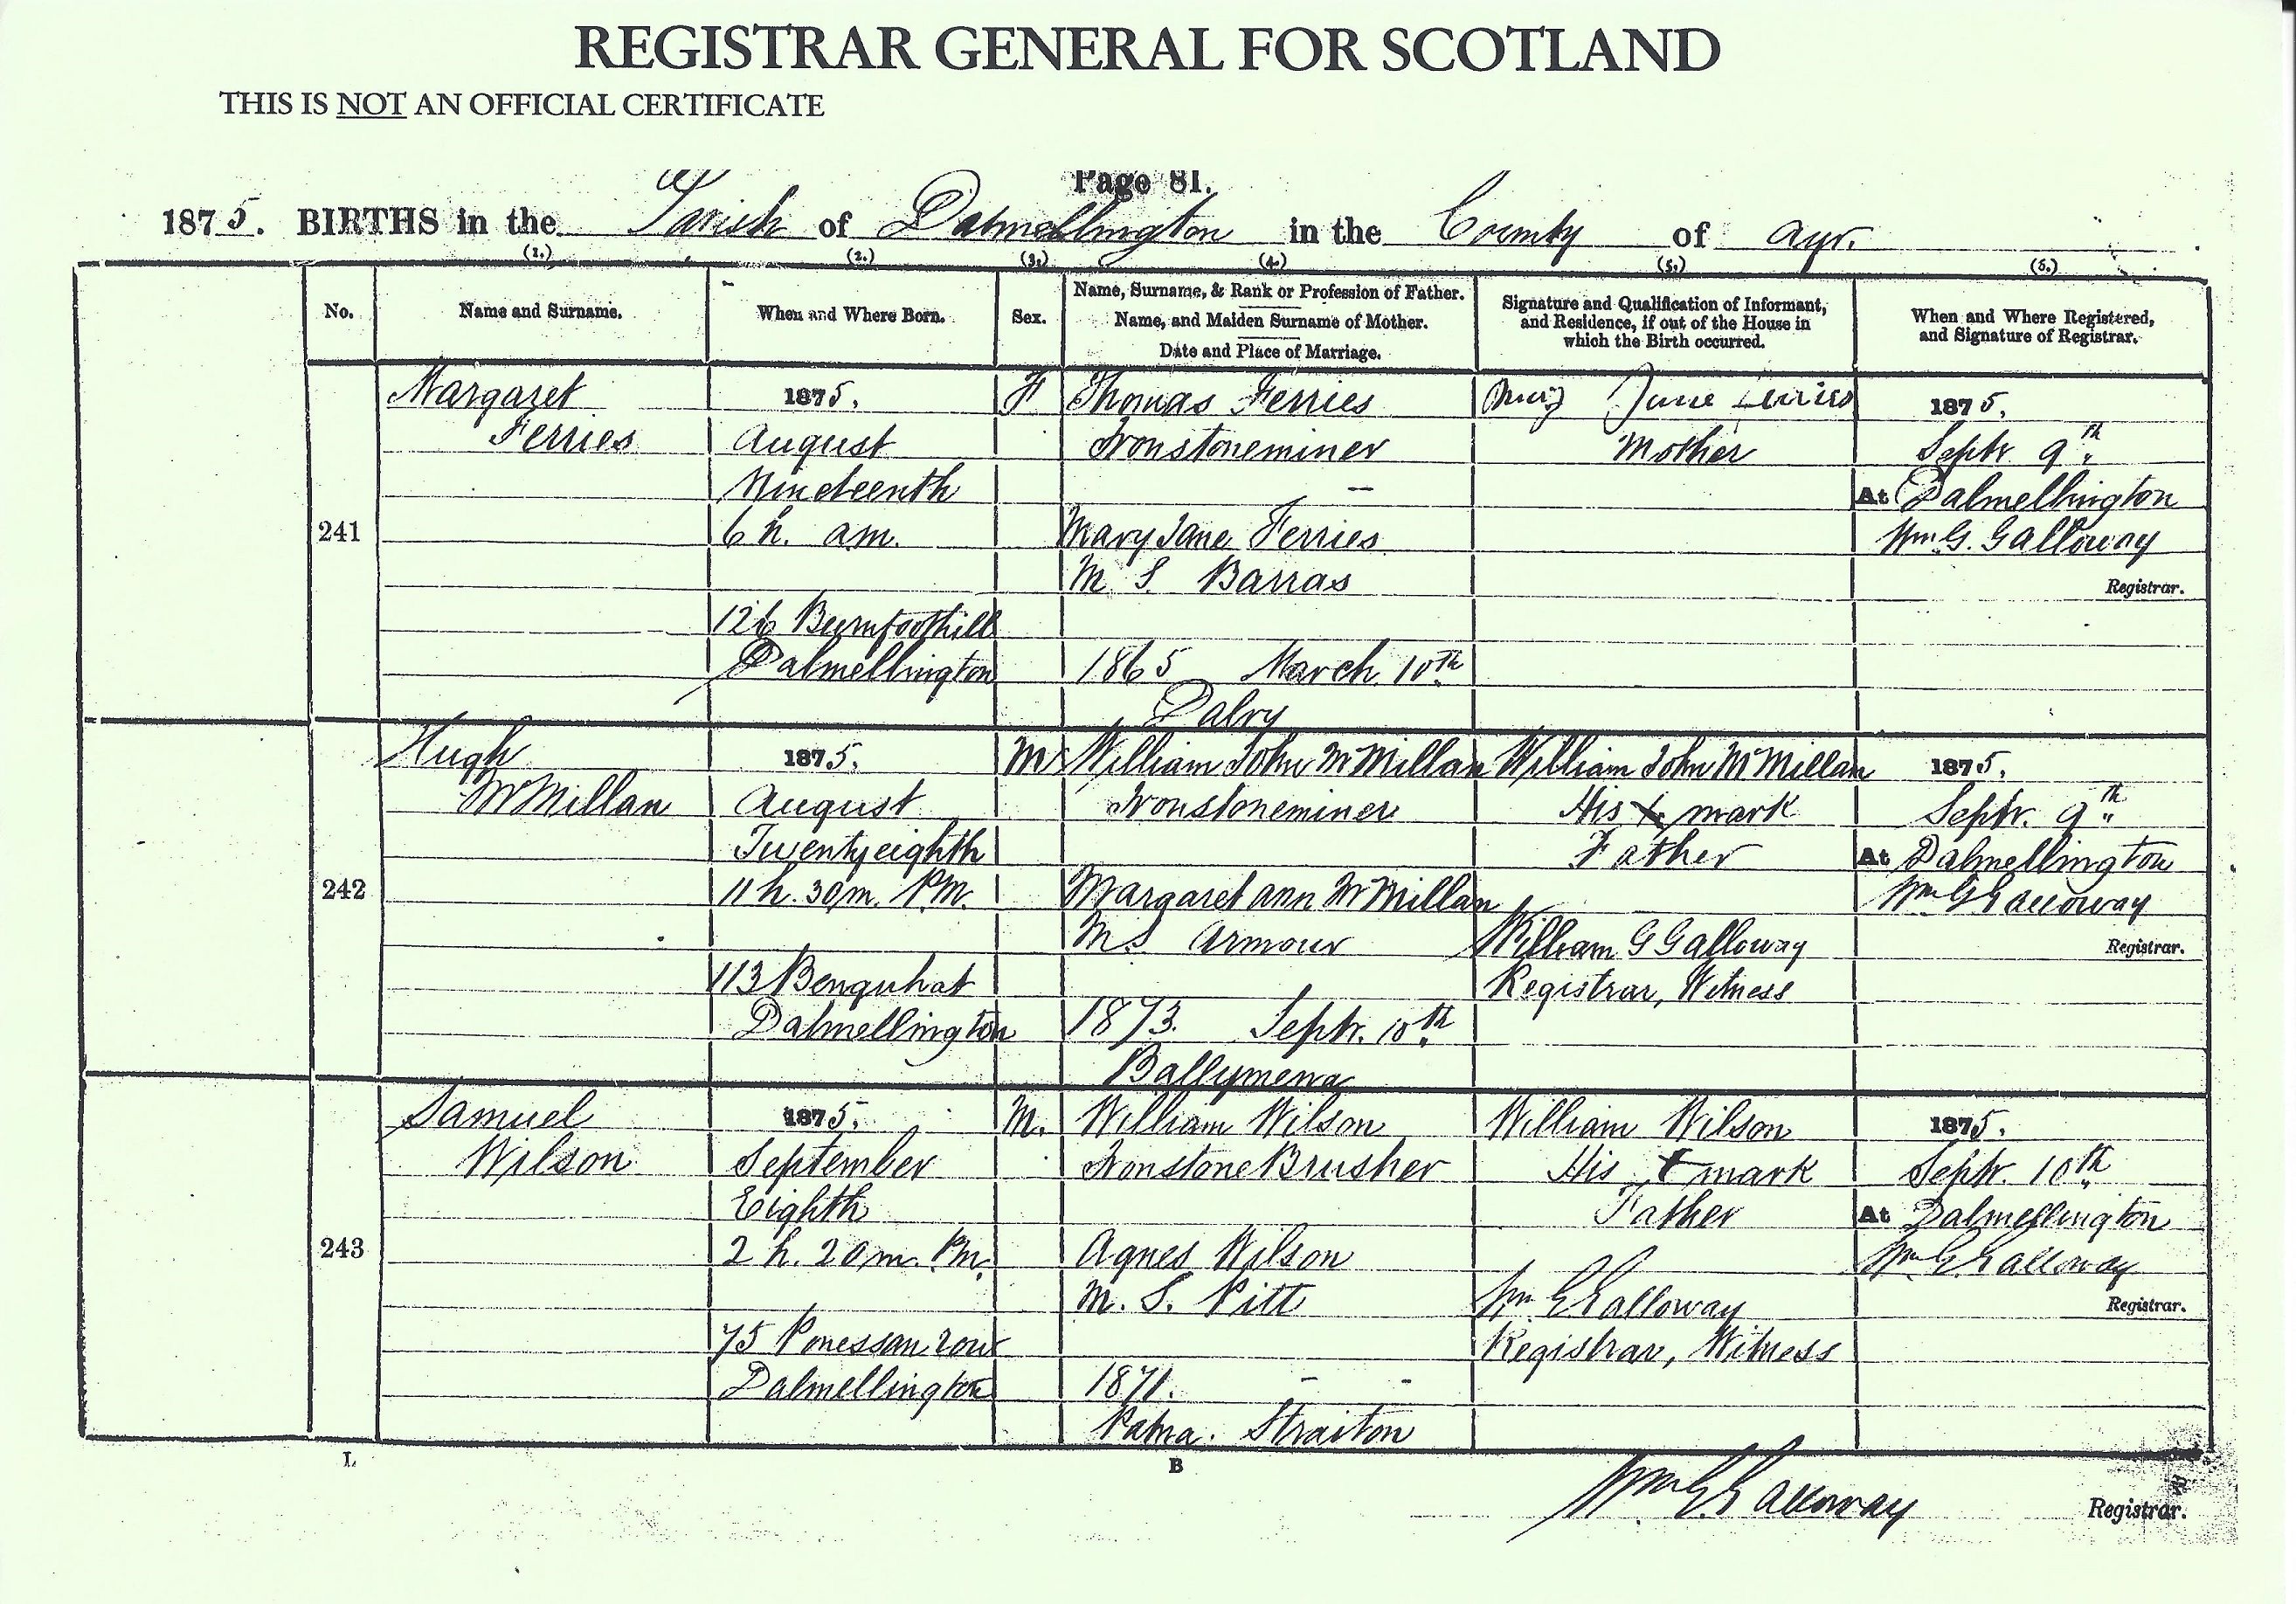 REGISTRAR GENERAL FOR SCOTLAND
THIS IS NOT AN OFFICIAL CERTIFICATE
Page 81.
1875. BIRTHS in the Parish of Dalmellington in the County of Ayr.
(1.) (2.) (3.) (4.) (5.) (6.)
No.
Name and Surname.
When and Where Born.
Sex.
Name, Surname, & Rank or Profession of Father.
Name, and Maiden Surname of Mother.
Date and Place of Marriage.
Signature and Qualification of Informant,
and Residence, if out of the House in
which the Birth occurred.
When and Where Registered,
and Signature of Registrar.
241
Margaret
Ferries
1875.
August
Nineteenth
6 h. am.
126 Burnfoothill
Dalmellington
F
Thomas Ferries
Ironstoneminer
Mary Jane Ferries
M. S. Barras
1865 March 10th
Dalry
Jane Ferries
Mother
1875.
Septr. 9th
At Dalmellington
Wm. G. Galloway
Registrar.
242
Hugh
McMillan
1875.
August
Twentyeighth
11 h. 30 m. P.M.
113 Benquhat
Dalmellington
M
William John McMillan
Ironstoneminer
Margaret Ann McMillan
M.S. Armour
1873. Septr. 10th
Ballymena
William John McMillan
His x mark
Father
William G Galloway
Registrar, Witness
1875.
Septr. 9th
At Dalmellington
Wm G Galloway
Registrar.
243
Samuel
Wilson
1875.
September
Eighth
2 h. 20 m. P.M.
75 Ponessan row
Dalmellington
M.
William Wilson
Ironstone Brusher
Agnes Wilson
M. S. Pitt
1871. - -
Patna. Straiton
William Wilson
His x mark
Father
Wm G Galloway
Registrar, Witness
1875.
Septr. 10th
At Dalmellington
Wm G. Galloway
Registrar.
L B
Wm G Galloway Registrar.